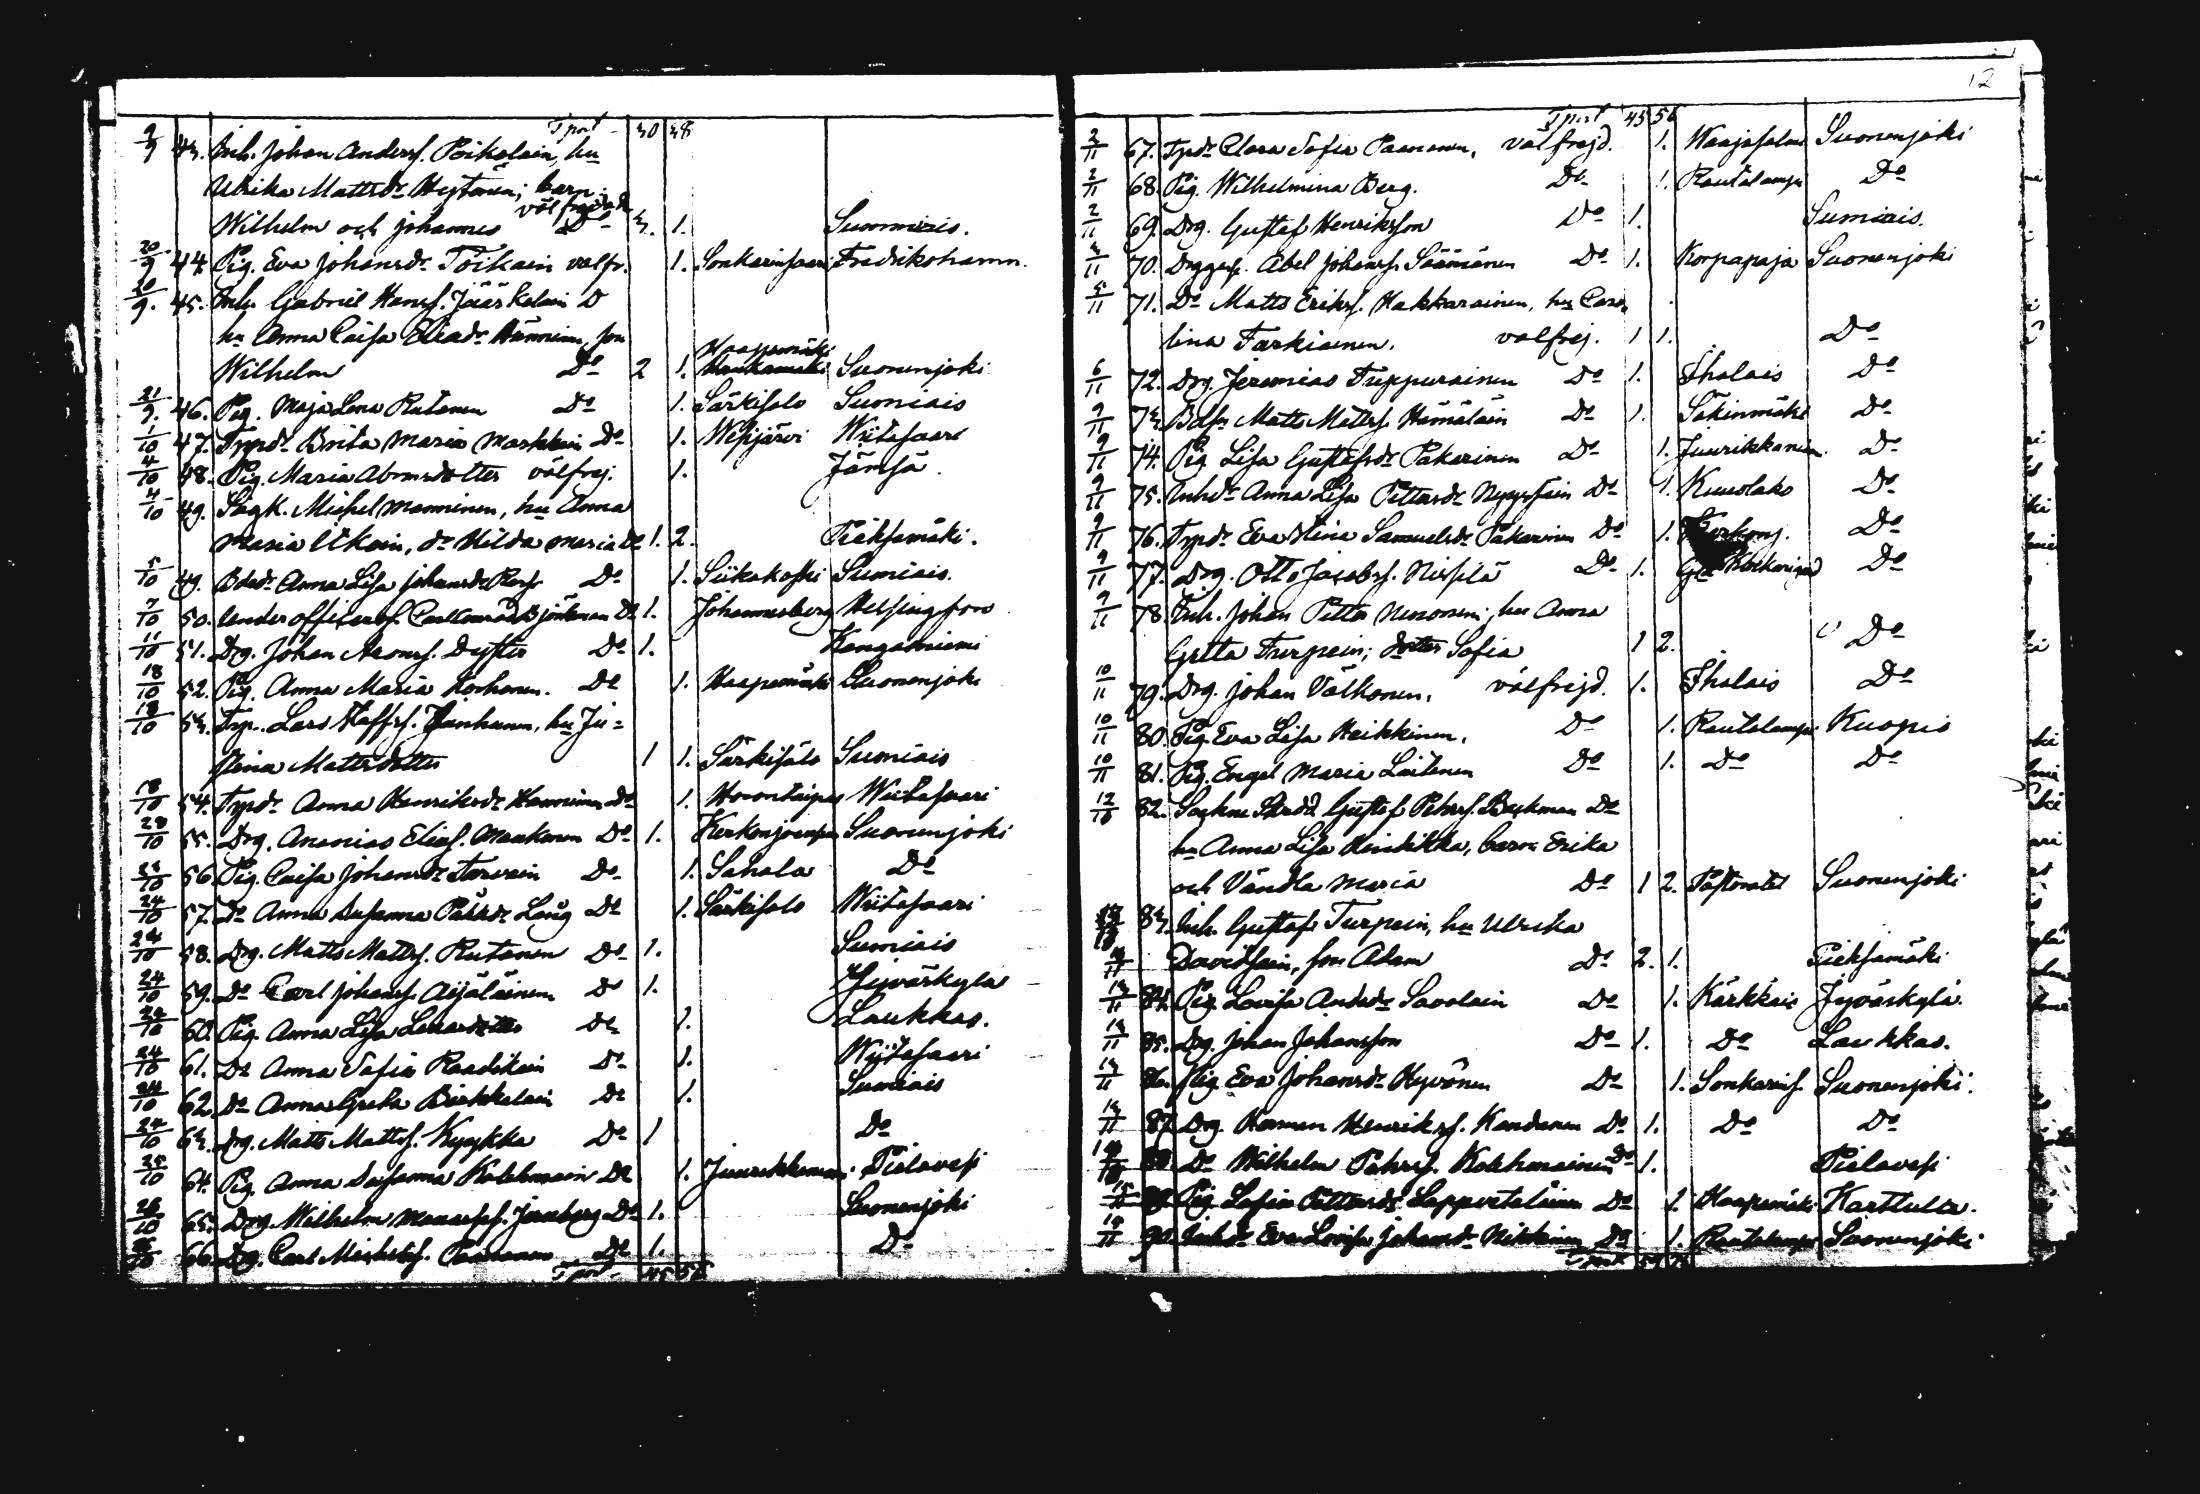 12
Tport 30 38
9/9 43. Inh. Johan Anderss. Poikolain, hu
Ulrika Mattsdr Heytäin; barn:
välfrejdade
Wilhelm och Johannes Do 3. 1. Summiais.
20/9 44. Pig. Eva Johansdr Toikain välfr. 1. Sonkarinsaari Fredrikshamn.
20/9. 45. Inh. Gabriel Hanss. Jääskelain D
hu Anna Caisa Eliadr Hänninen, son
Haapamäki
Wilhelm Do 2 1. Suonenjoki
21/9. 46. Pig. Maja Lena Rutanen Do 1. Särkisalo Sumiais
1/10 47. Trpdr Brita Maria Markkain Do 1. Wesijärvi Wiitasaari
4/10 48. Pig. Maria Abramsdotter välfrej. 1. Jämsä.
4/10 49. Sågk. Michel Manninen, hu Anna
Maria Ukain, dr Hilda Maria Do 1. 2. Pieksamäki.
5/10 49. Anna Lisa Johansdr Do 1. Siikakoski Sumiais.
7/10 50. Underofficersf. Carl Conrad Björkman Do 1. Johannesberg Helsingfors
11/10 51. Drg. Johan Aronss. Dyster Do 1. Kangasniemi
18/10 52. Pig. Anna Maria Korhonen. Do 1. Haapamäki Suonenjoki
18/10 53. Trp. Lars Staffss. Janhunen, hu Ju=
stina Mattsdotter 1 1. Särkisalo Sumiais
18/10 54. Trpdr Anna Henriksdr Hänninen Do 1. Wiitasaari
28/10 55. Drg. Ananias Eliass. Maukonen Do 1. Kerkonjoensuu Suonenjoki
56. Pig. Caisa Johansdr Tarvain Do 1. Sahala Do
24/10 57. Do Anna Susanna Påhlsdr Lång Do 1. Särkisalo Wiitasaari
24/10 58. Drg. Matts Mattss. Rutanen Do 1. Sumiais
24/10 59. Do Carl Johanss. Äijäläinen Do 1. Jyväskylä
24/10 60. Pig. Anna Lisa Do 1. Laukkas.
24/10 61. Do Anna Sofia Raadikain Do 1. Wiitasaari
24/10 62. Do Anna Greta Pirkkalain Do 1. Sumiais
24/10 63. Drg. Matts Mattss. Kyykka Do 1 Do
25/10 64. Pig. Anna Susanna Kolehmain Do 1. Juurikkaniemi Pielavesi
26/10 65. Drg. Wilhelm Manasses. Do 1. Suonenjoki
66. Drg. Carl Michelss. Paananen Do 1. Do
Tport 45 56
Tport 45 56
2/11 67. Trpdr Clara Sofia Paananen, välfrejd. 1. Waajasalmi Suonenjoki
2/11 68. Pig. Wilhelmina Berg. Do 1. Rautalampi Do
2/11 69. Drg. Gustaf Henriksson Do 1. Sumiais.
3/11 70. Drggess. Abel Johanss. Säämänen Do 1. Korpapaja Suonenjoki
5/11 71. Do Matts Erikss. Hakkarainen, hu Caro
lina Tarkiainen. välfrej. 1 1. Do
6/11 72. Drg. Jeremias Tuppurainen Do 1. Ihalais Do
9/11 73. Matts Mattss. Hämäläin Do 1. Säkinmäki Do
9/11 74. Pig Lisa Gustafsdr Pakarinen Do 1. Juurikkaniemi. Do
9/11 75. Inhdr Anna Lisa Pettersdr Nyyssäin Do 1. Kuuslaks Do
9/11 76. Trpdr Eva Stina Samuelsdr Pakarinen Do 1. Kerkonj. Do
9/11 77. Drg. Otto Jacobss. Niskala Do 1. Do
9/11 78. Inh. Johan Petter Nenonen; hu Anna
Gretta Turpein; dotter Sofia 1 2. Do
10/11 79. Drg. Johan Valkonen. välfrejd. 1. Ihalais Do
10/11 80. Pig. Eva Lisa Heikkinen. Do 1. Rautalampi Kuopio
10/11 81. Pig. Engel Maria Laitenen Do 1. Do Do
12/10 82. Gustaf Petterss. Backman Do
hu Anna Lisa Hindrikka, barn Erika
och Vändla Maria Do 1 2. Pastoratet Suonenjoki
83. Inh. Gustaf Turpein, hu Ulrika
Davidsain, son Adam Do 2. 1. Pieksamäki
13/11 84. Pig. Lovisa Andersdr Savolain Do 1. Kärkkäis Jyväskylä.
13/11 85. Drg. Johan Johansson Do 1. Do Laukkas.
13/11 86. Pig. Eva Johansdr Hyvönen Do 1. Sonkarins. Suonenjoki.
13/11 87. Drg. Herman Henrikss. Kandanen Do 1. Do Do
88. Do Wilhelm Påhlss. Kolehmainen Do 1. Pielavesi
15/11 89. Pig. Sofia Pettersdr Lappvetelainen Do 1. Haapamäki Karttula.
19/11 90. Inhdr Eva Lovisa Johansdr Nikkinen Do 1. Rautalampi Suonenjoki
Tport